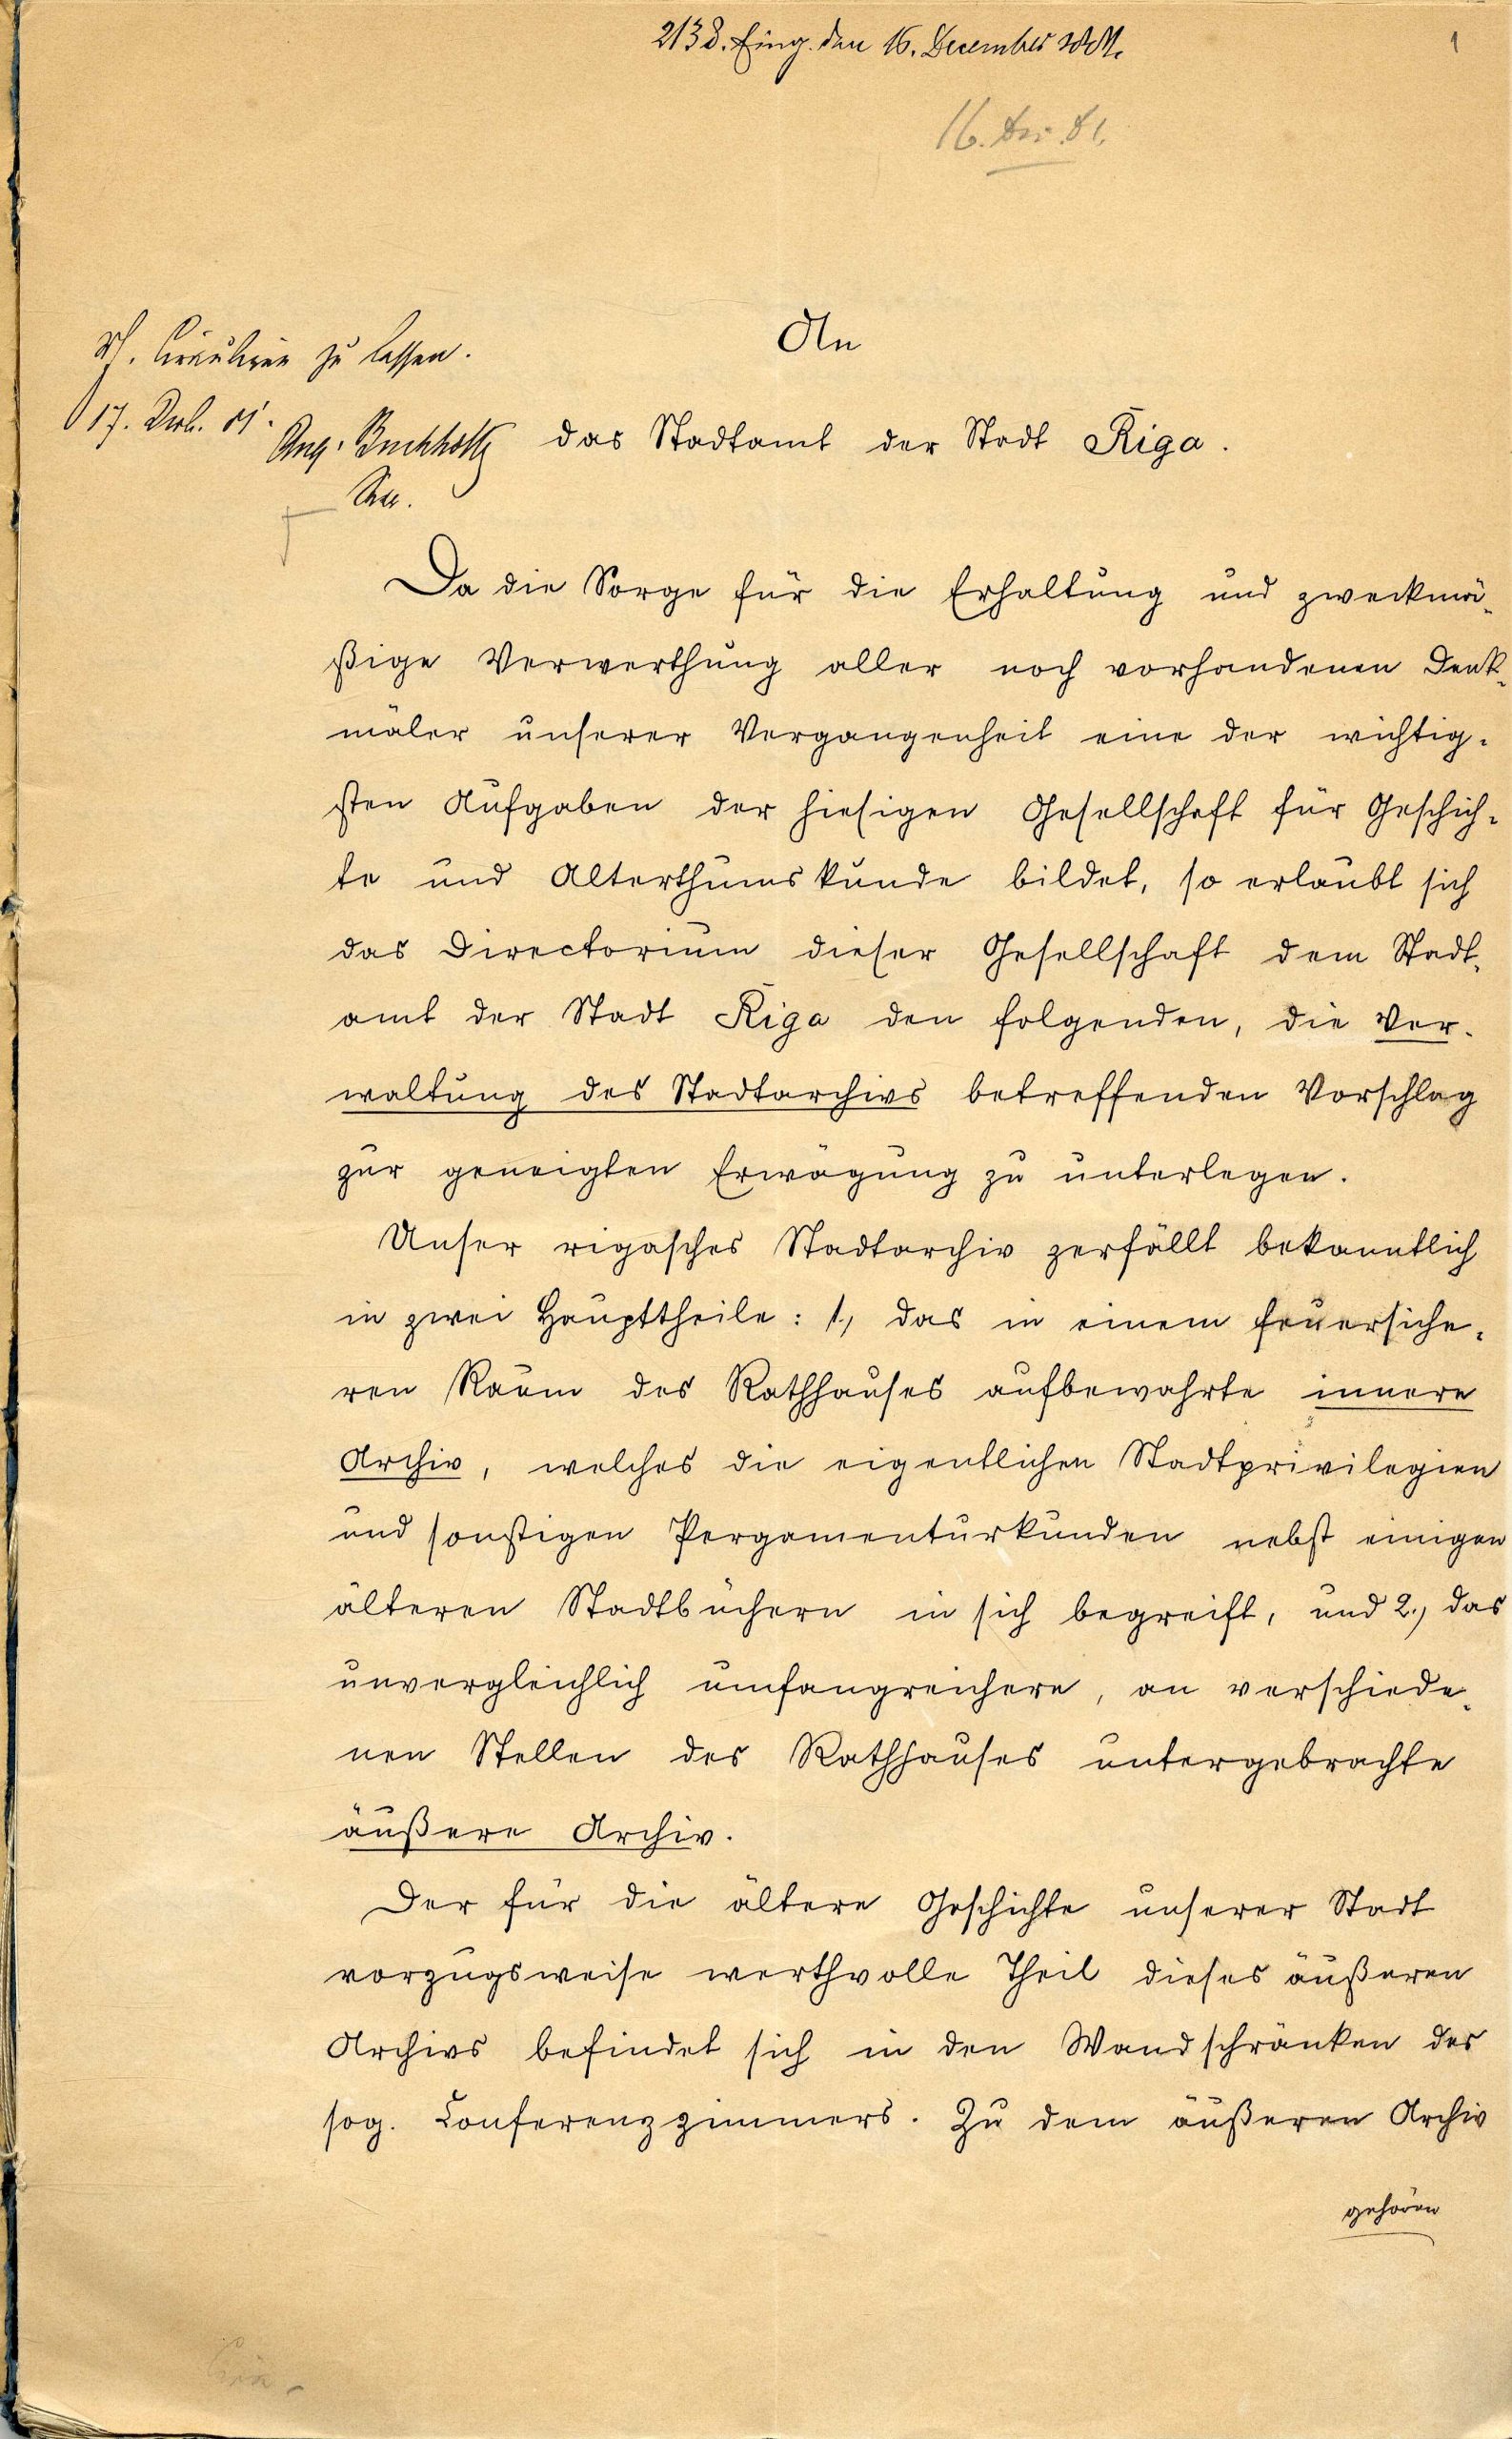 2138. Eing. den 16. December 1881.
1
16. Dec. 81.
An
Circuliren zu lassen.
17. Decb. 81.
Aug. Buchholtz
Secr.
das Stadtamt der Stadt Riga.
Da die Sorge für die Erhaltung und zweckmä-
ßige Verwerthung aller noch vorhandenen Denk-
mäler unserer Vergangenheit eine der wichtig-
sten Aufgaben der hiesigen Gesellschaft für Geschich-
te und Alterthumskunde bildet, so erlaubt sich
das Directorium dieser Gesellschaft dem Stadt-
amt der Stadt Riga den folgenden, die Ver-
waltung des Stadtarchivs betreffenden Vorschlag
zur geneigten Erwägung zu unterlegen.
Unser rigasches Stadtarchiv zerfällt bekanntlich
in zwei Haupttheile: 1., das in einem feuersiche-
ren Raum des Rathhauses aufbewahrte innere
Archiv, welches die eigentlichen Stadtprivilegien
und sonstigen Pergamenturkunden nebst einigen
älteren Stadtbüchern in sich begreift, und 2., das
unvergleichlich umfangreichere, an verschiede-
nen Stellen des Rathhauses untergebrachte
äußere Archiv.
Der für die ältere Geschichte unserer Stadt
vorzugsweise werthvolle Theil dieses äußeren
Archivs befindet sich in den Wandschränken des
sog. Conferenzzimmers. Zu dem äußeren Archiv
gehören